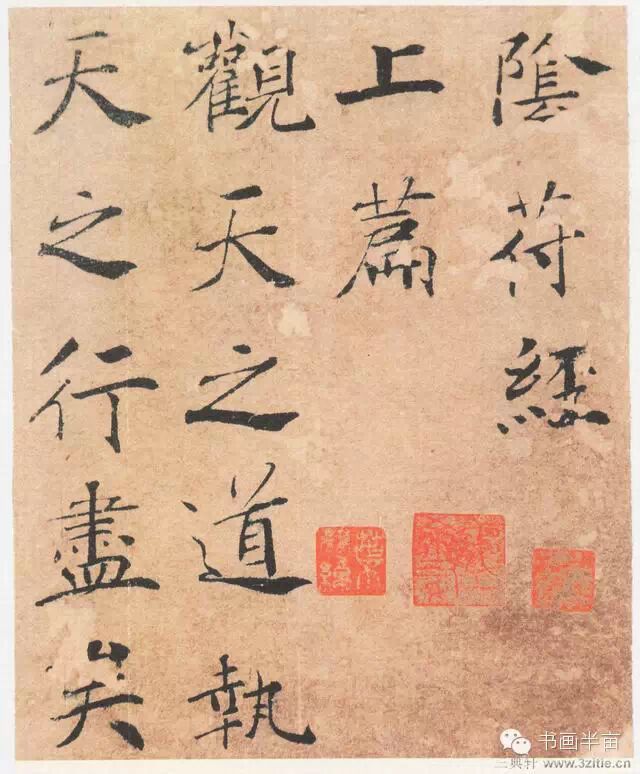 陰苻經
上萹
觀天之道執
天之行盡矣
书画半亩
三典轩 www.3zitie.cn